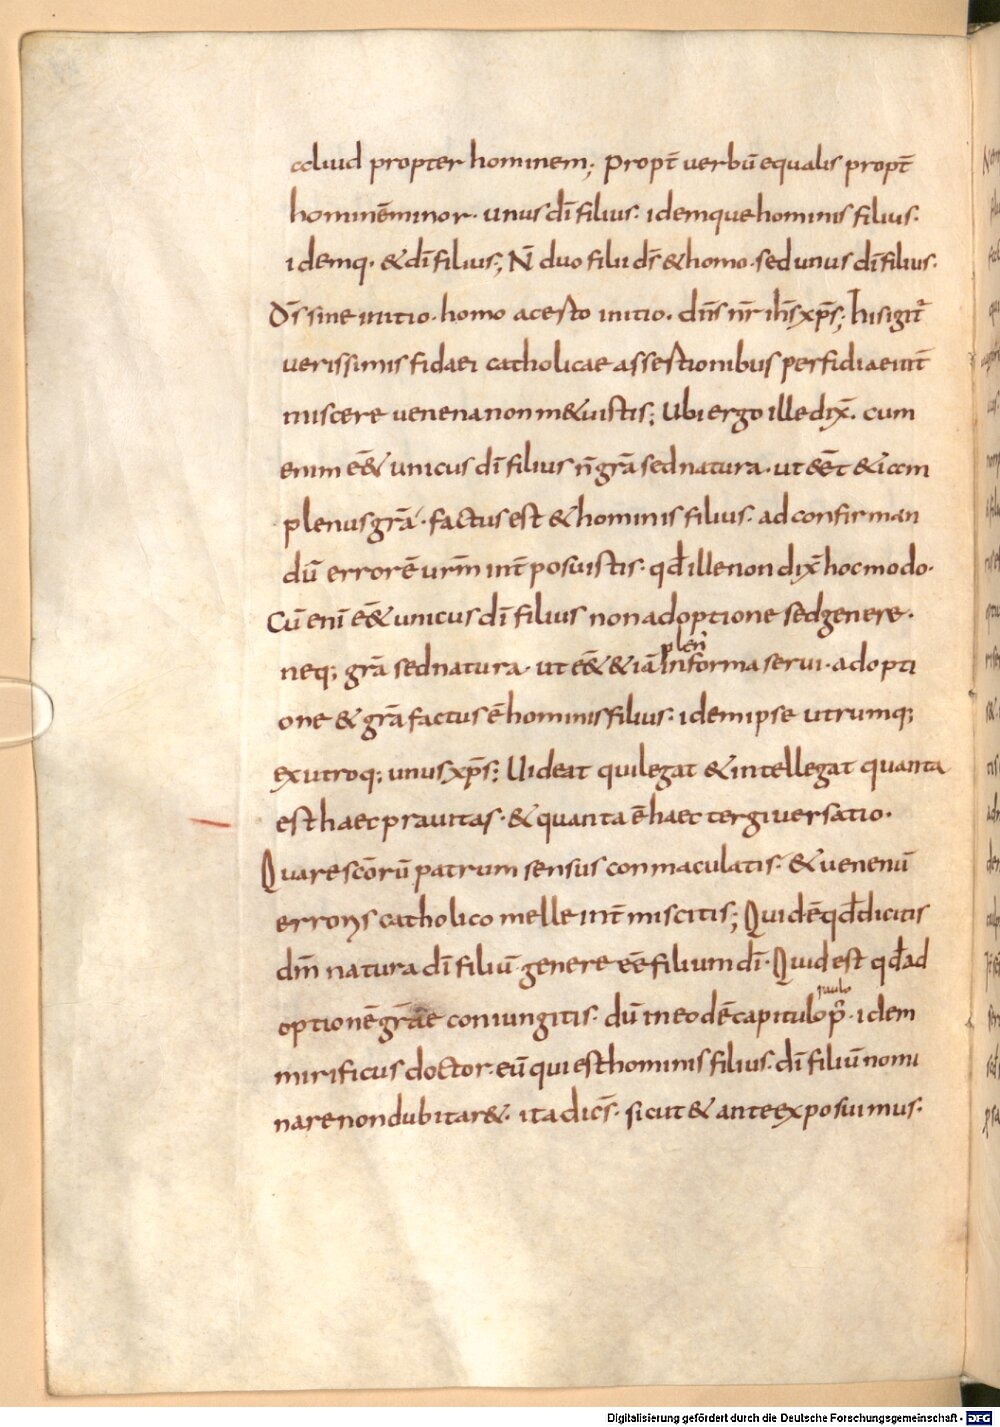 aliud propter hominem; Propt̄ uerbū equalis propt̄
hominē minor· unus dī filius· idemque hominis filius·
idemq· & dī filius; N̄ duo filii ds̄ & homo· sed unus dī filius·
Ds̄ sine initio· homo a certo initio· dn̄s nr̄ ih̄s xp̄s; his igit̄
uerissimis fidaei catholicae assertionibus perfidiae int̄
miscere uenena non m&uistis; Ubi ergo ille dix̄· cum
enim ēē& unicus dī filius n̄ grā sed natura· ut ēēt & iam
plenus grā· factus est & hominis filius· ad confirman
dū errorē urm̄ int̄ posuistis· qđ ille non dix̄ hoc modo·
Cū eni ēē& unicus dī filius non adoptione sed genere·
plen̄
neq; grā sed natura· ut ēē& & iā in forma serui· adopti
one & grā factus ē hominis filius· idem ipse utrumq;
ex utroq; unus xp̄s; Uideat qui legat & intellegat quanta
est haec prauitas· & quanta ē haec tergiuersatio·
Quare scōrū patrum sensus conmaculatis· & uenenū
erroris catholico melle int̄ miscitis; Quid ē qđ dicitis
dm̄ natura dī filiū genere ēē filium dī· Quid est qđ ad
optionē grae coniungitis· dū in eodē capitulo pr̄· idem
paulo
mirificus doctor· eū qui est hominis filius· dī filiū nomi
nare non dubitar&· ita dic̄s· sicut & ante exposuimus·
Digitalisierung gefördert durch die Deutsche Forschungsgemeinschaft - DFG